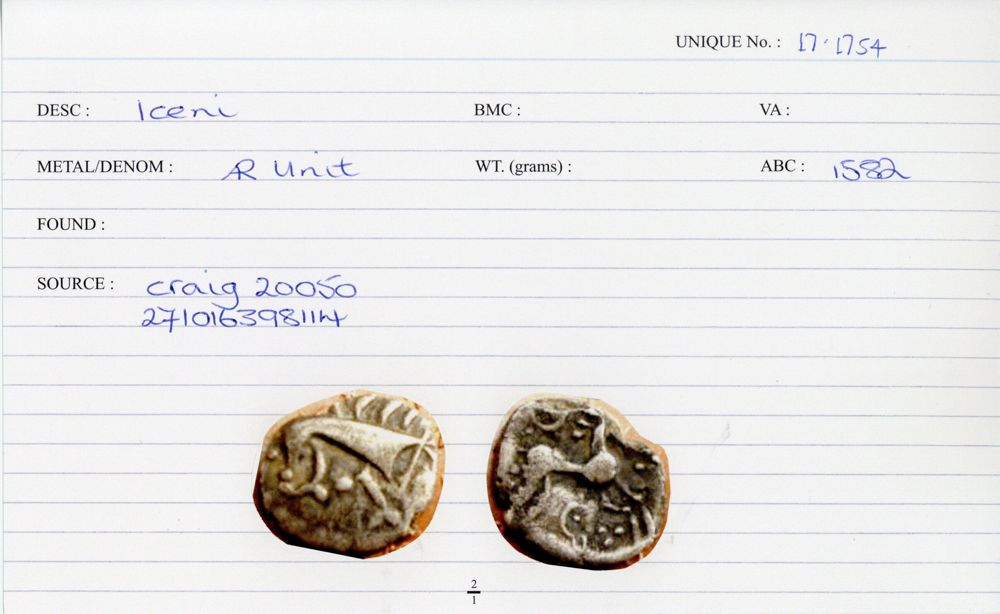 UNIQUE No. : 17.1754
DESC : Iceni BMC : VA :
METAL/DENOM : AR Unit WT. (grams) : ABC : 1582
FOUND :
SOURCE : craig 20050
271016398114
2
1